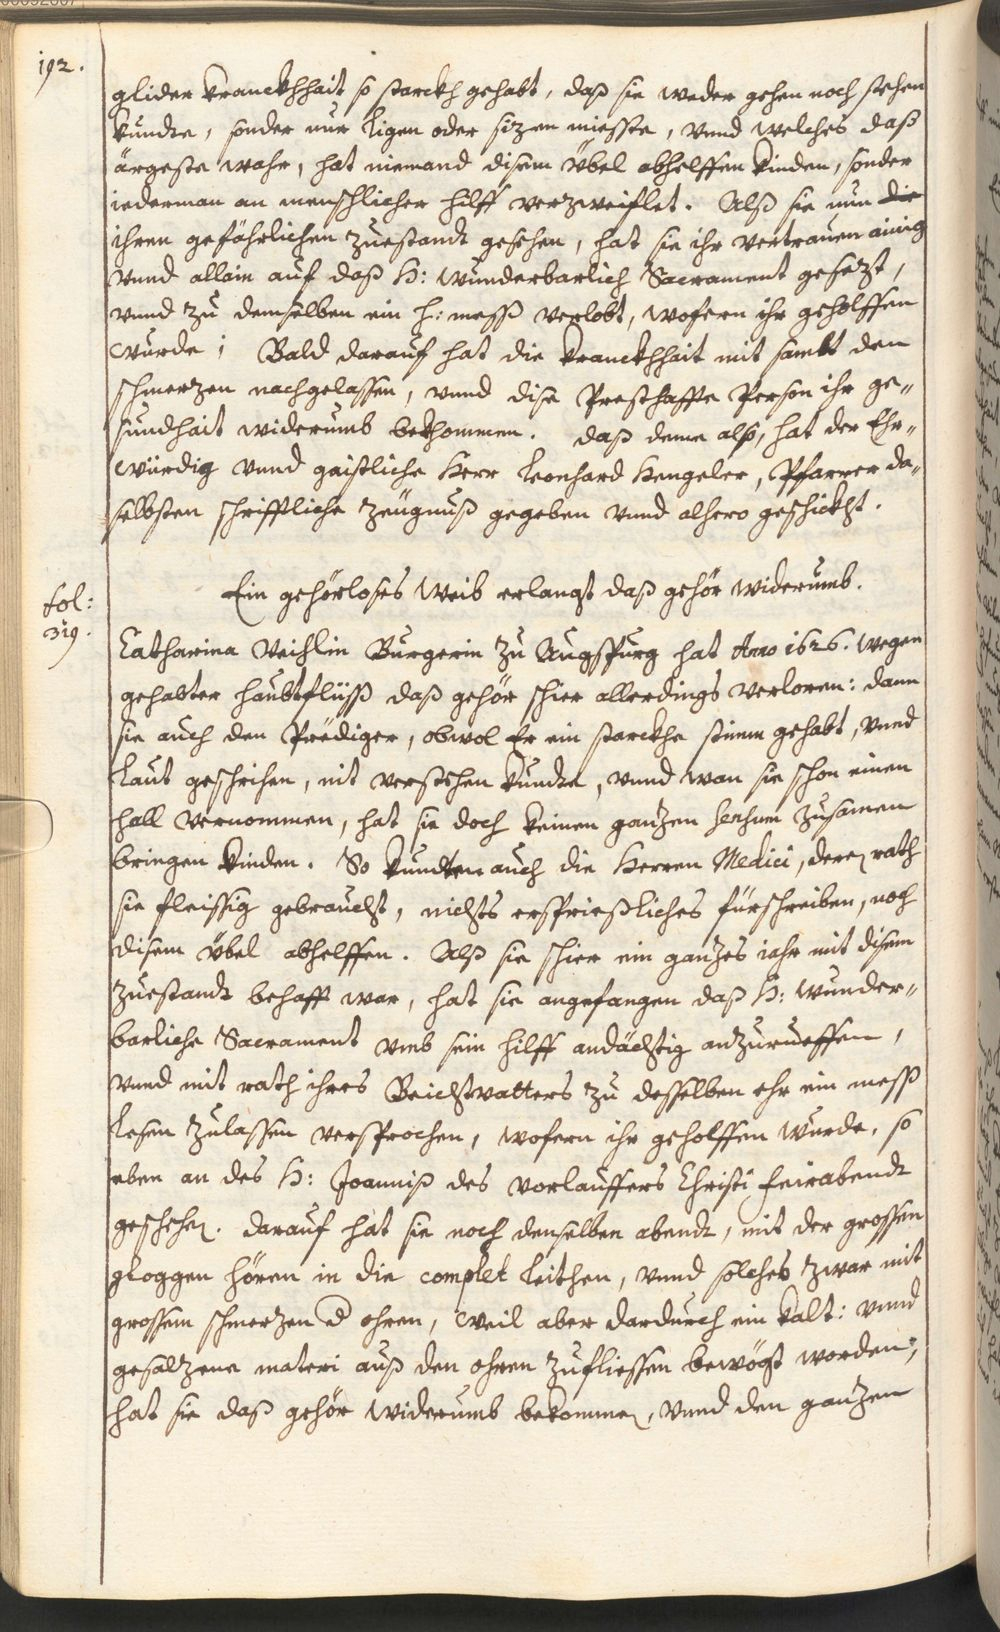 192.
glider kranckhhait so starckh gehabt, daß sie weder gehen noch stehen
kundte, sonder nur ligen oder sizen miesste, vnnd welches daß
ärgeste wahr, hat niemand disem übel abhelffen kinden, sonder
iederman an menschlicher hilff verzweiflet. Alß sie nun die
ihren gefährlichen zuestandt gesehen, hat sie ihr vertrauen ainig
vnnd allein auf daß H: wunderbarlich Sacrament gesezt,
vnnd zu demselben ein h: mess verlobt, wofern ihr geholffen
wurde; Bald darauf hat die kranckhhait mit sambt den
schmerzen nachgelassen, vnnd dise Presthaffte Person ihr ge-
sundhait widerumb bekhommen. daß deme also, hat der Ehr-
würdig vnnd gaistliche Herr Leonhard Hengeler, Pfarrer da-
selbsten schrifftliche zeügnuß gegeben vnnd alhero geschickht.
fol:
319.
Ein gehörloses Weib erlangt daß gehör widerumb.
Catharina Veihlin Burgerin zu Augspurg hat Anno 1626. wegen
gehabter haubtflüß daß gehör schier allerdings verloren: dann
sie auch den Prediger, obwol Er ein starckhe stimm gehabt, vnnd
laut geschrihen, nit verstehen kundte, vnnd wan sie schon einen
hall vernommen, hat sie doch keinen ganzen zusamen
bringen kinden. So kundten auch die Herren Medici, deren rath
sie fleissig gebraucht, nichts ersprießliches fürschreiben, noch
disem übel abhelffen. Alß sie schier ein ganzes iahr mit disem
zuestandt behafft war, hat sie angefangen daß H: wunder-
barliche Sacrament vmb sein hilff andächtig anzurueffen,
vnnd mit rath ihres Beichtvatters zu desselben ehr ein mess
lesen zulassen versprochen, wofern ihr geholffen wurde, so
eben an des H: Joanniß des vorlauffers Christi feirabendt
geschehen. darauf hat sie noch denselben abendt, mit der grossen
gloggen hören in die complet leithen, vnnd solches zwar mit
grossem schmerzen d ohren, weil aber dardurch ein kalt: vnnd
gesalzene materi auß den ohren zufliessen bewögt worden,
hat sie daß gehör widerumb bekommen, vnnd den ganzen